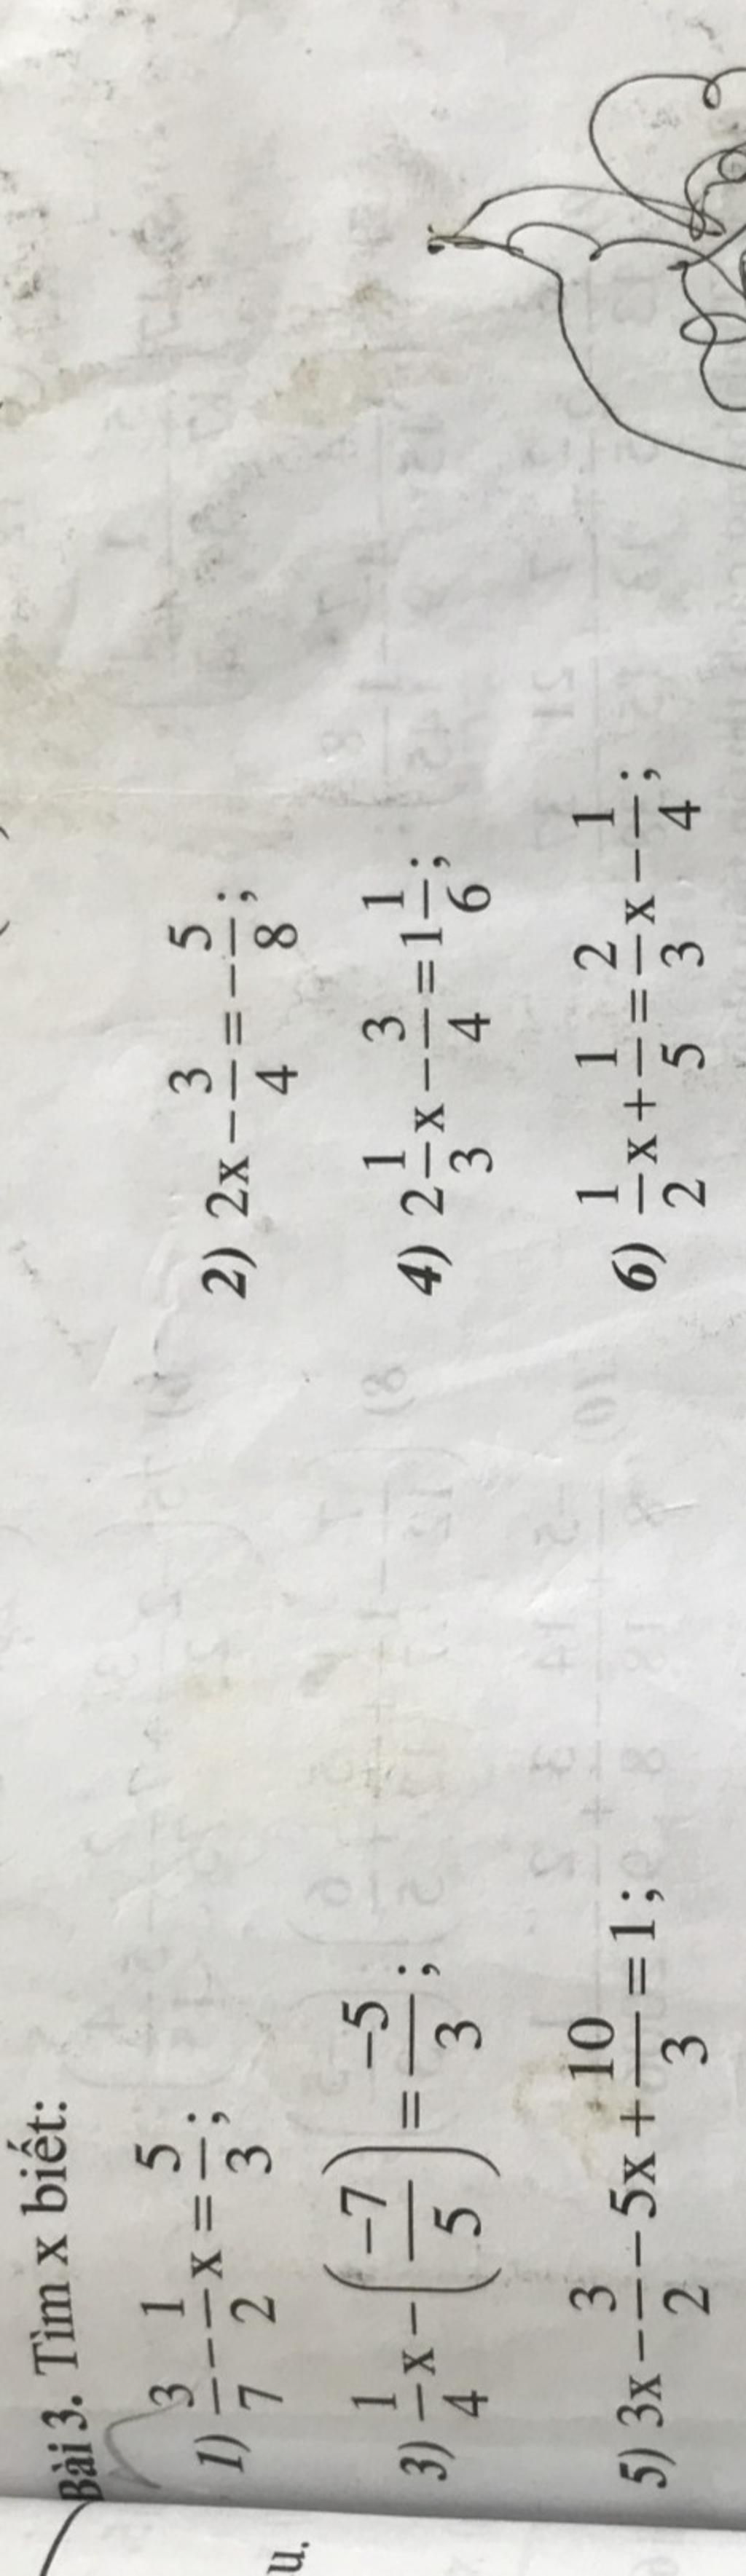 Bài 3. Tìm x biết:
1) 3/7 - 1/2 x = 5/3; 2) 2x - 3/4 = -5/8;
3) 1/4 x - (-7/5) = -5/3; 4) 2 1/3 x - 3/4 = 1 1/6;
5) 3x - 3/2 - 5x + 10/3 = 1; 6) 1/2 x + 1/5 = 2/3 x - 1/4;
u.